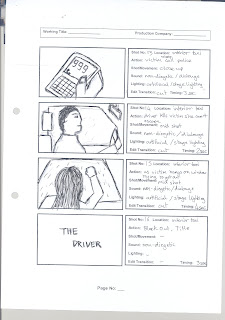 Working Title:
Production Company:
999
Shot No: 13 Location: interior taxi
Action: victim call police
Shot/Movement: close up
Sound: non-diegetic / dialouge
Lighting: artificial / stage lighting
Edit Transition: cut Timing: 3 sec
Shot No: 14 Location: interior taxi
Action: driver tells victim she can't
Shot/Movement: mid shot
Sound: non-diegetic / dialouge
Lighting: artificial / stage lighting
Edit Transition: cut Timing:
Shot No: 15 Location: interior taxi
Action: victim on window
trying to get out
Shot/Movement: mid shot
Sound: non-diegetic / dialouge
Lighting: artificial / stage lighting
Edit Transition: cut Timing:
THE
DRIVER
Shot No: 16 Location: interior taxi
Action: Black out, Title
Shot/Movement: -
Sound: non-diegetic
Lighting: -
Edit Transition: - Timing: 3 sec
Page No: